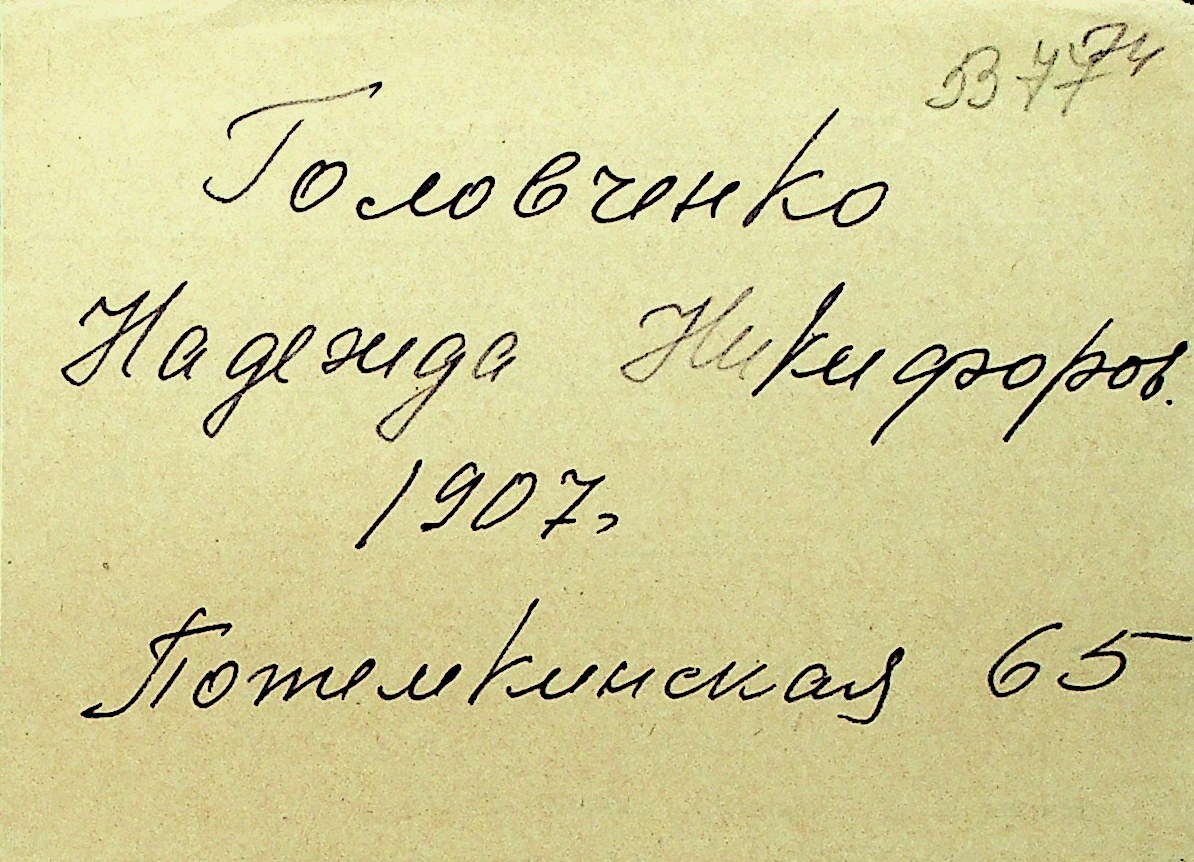 Головченко
Надежда Никифоров.
1907г
Потемкинская 65